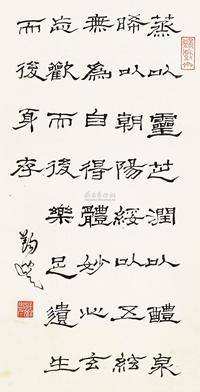 蒸以靈芝潤以醴泉
晞以朝陽綏以五絃
無為自得體妙心玄
忘歡而後樂足遺生
而後身存